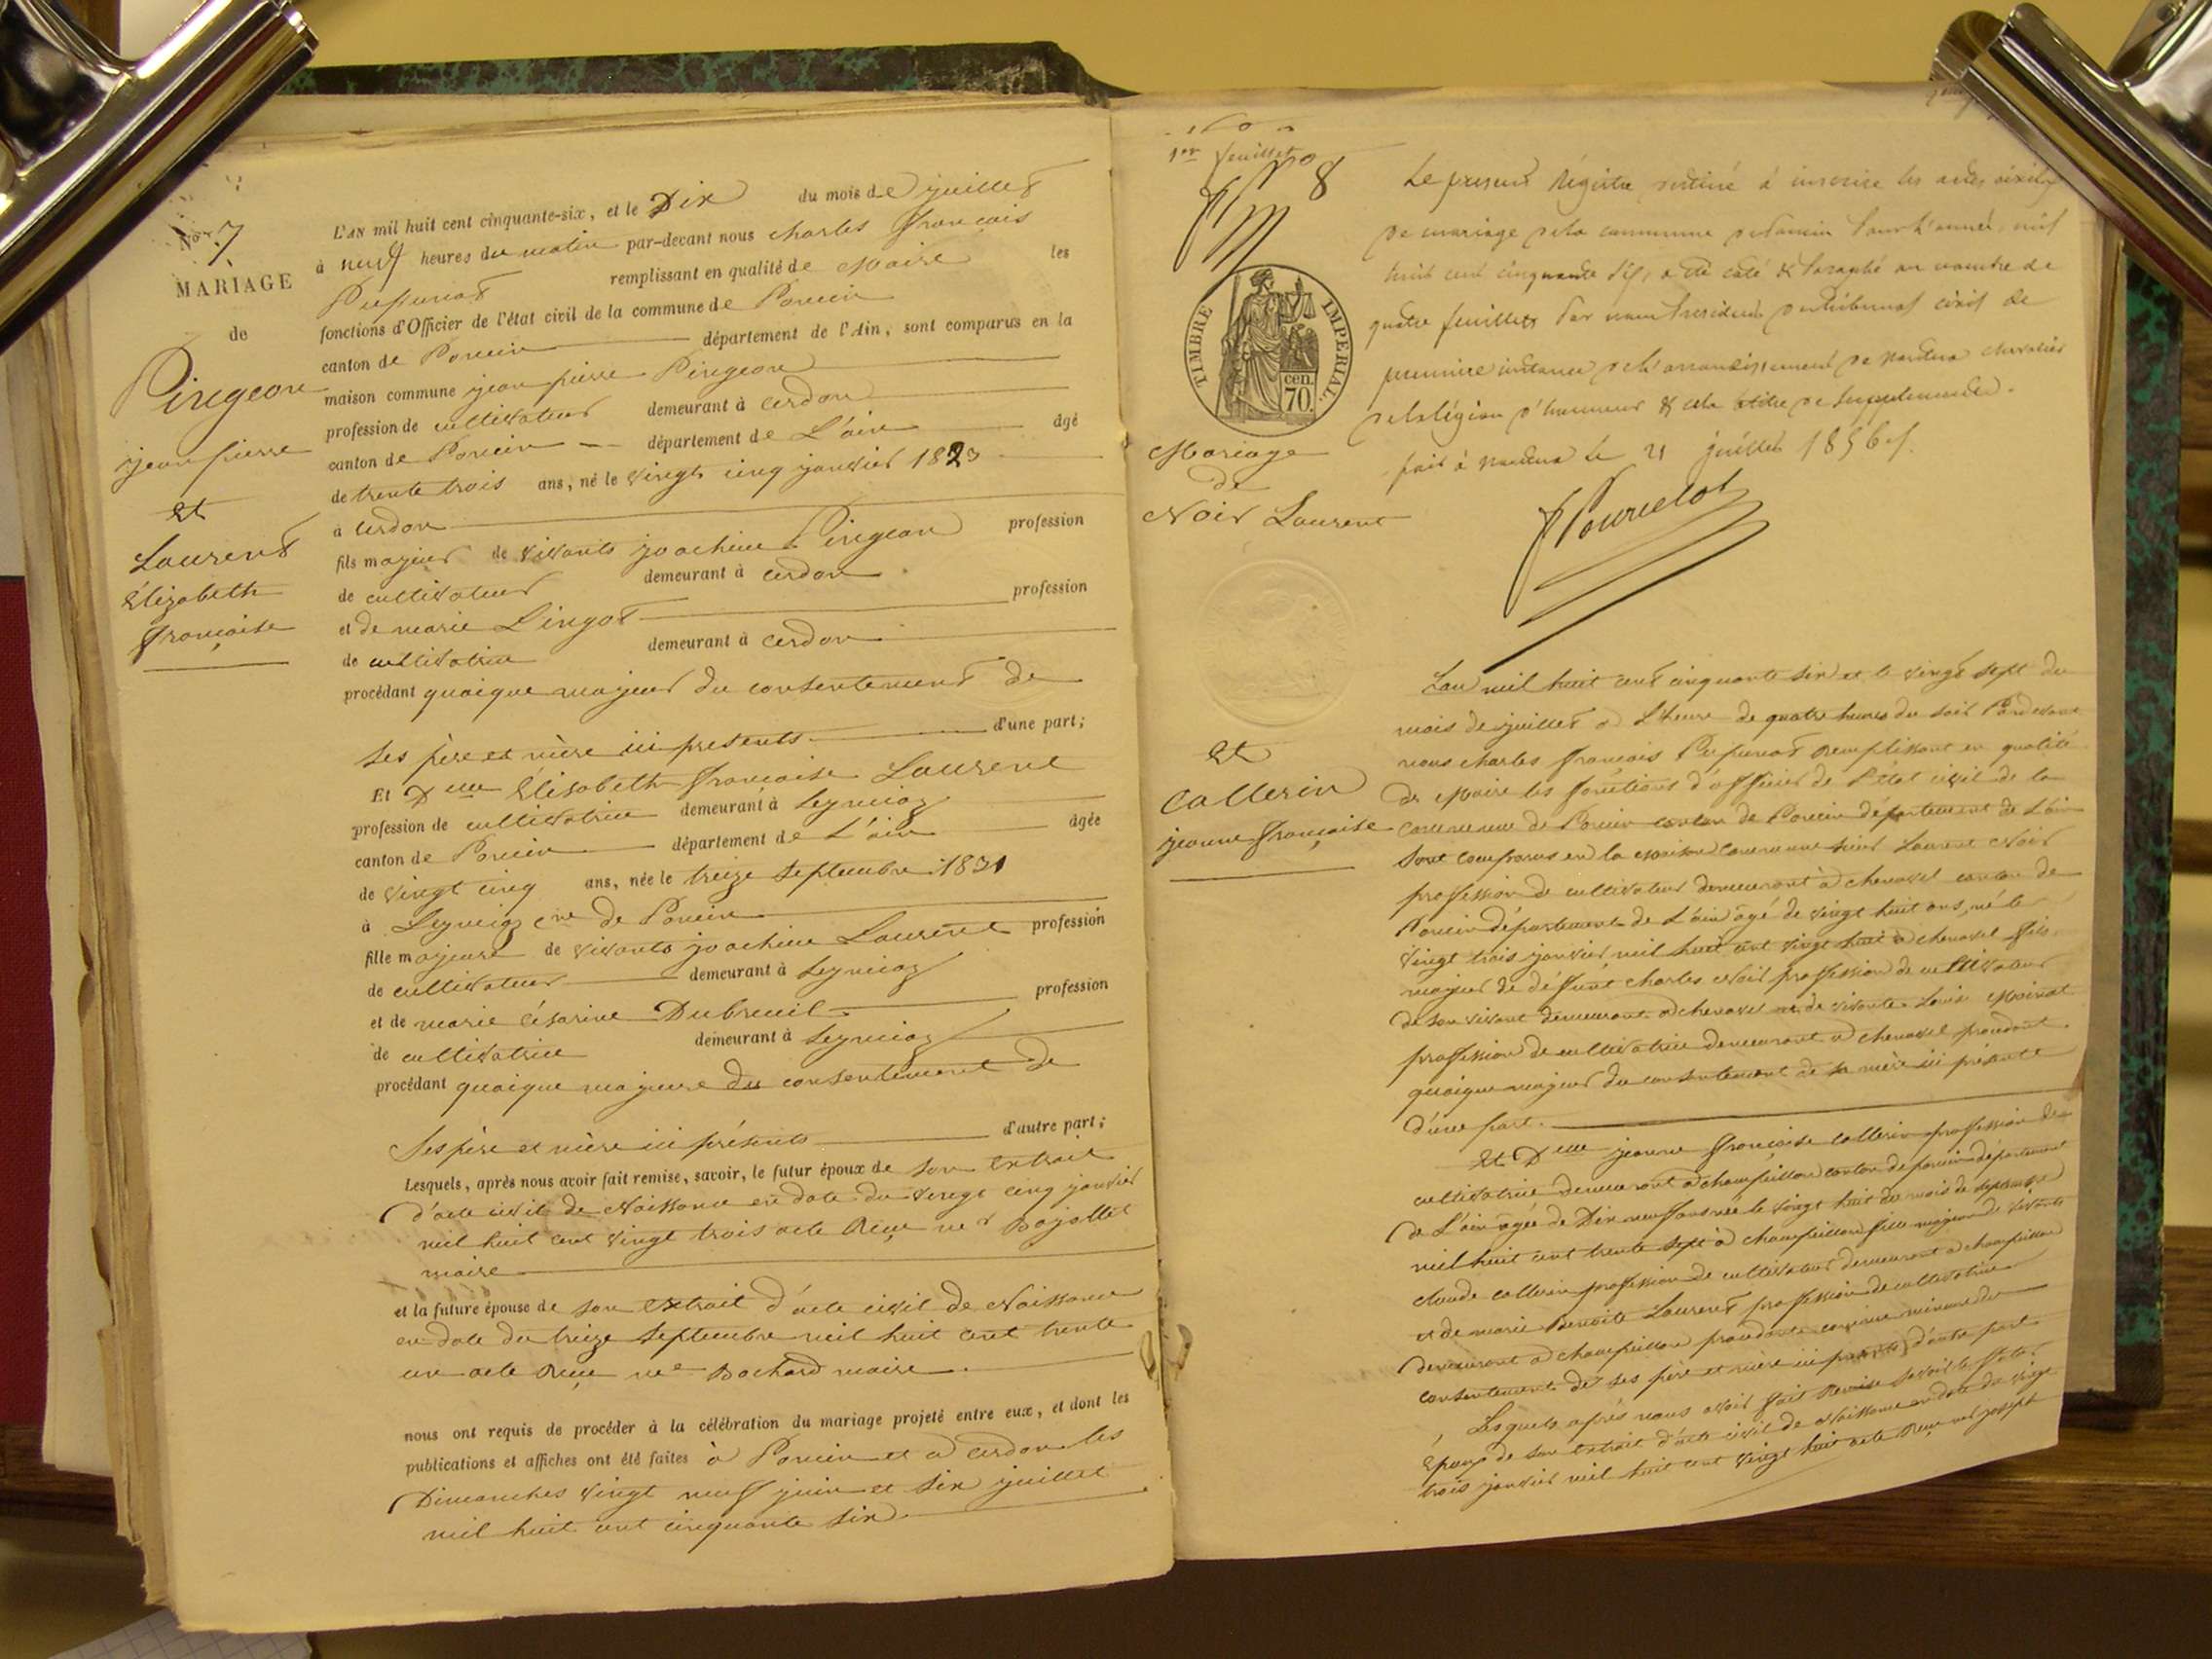 No 7
MARIAGE
de
Pingeon
jean pierre
et
Laurent
Élizabeth
françoise
L'AN mil huit cent cinquante-six, et le Dix du mois de juillet
à neuf heures du matin par-devant nous charles françois
remplissant en qualité de Maire les
fonctions d'Officier de l'état civil de la commune de Poncin
canton de Poncin département de l'Ain, sont comparus en la
maison commune jean pierre Pingeon
profession de cultivateur demeurant à cerdon
canton de Poncin département de L'ain âgé
de trente trois ans, né le vingt cinq janvier 1823
à cerdon
fils majeur de vivants joachim Pingeon profession
de cultivateur demeurant à cerdon
et de marie Lingot profession
de cultivatrice demeurant à cerdon
procédant quoique majeur du consentement de
ses père et mère ici présents d'une part;
Et Dlle Élisabeth françoise Laurent
profession de cultivatrice demeurant à Leymiaz
canton de Poncin département de L'ain âgée
de vingt cinq ans, née le treize septembre 1831
à Leymiaz cne de Poncin
fille majeure de vivants joachim Laurent profession
de cultivateur demeurant à Leymiaz
et de marie césarine Dubreuil profession
de cultivatrice demeurant à Leymiaz
procédant quoique majeure du consentement de
ses père et mère ici présents d'autre part;
Lesquels, après nous avoir fait remise, savoir, le futur époux de son extrait
d'acte civil de Naissance en date du vingt cinq janvier
mil huit cent vingt trois acte Reçu me Bojollet
maire
et la future épouse de son extrait d'acte civil de Naissance
en date du treize septembre mil huit cent trente
un acte Reçu me Bochard maire.
nous ont requis de procéder à la célébration du mariage projeté entre eux, et dont les
publications et affiches ont été faites à Poncin et à cerdon les
Dimanches vingt neuf juin et six juillet
mil huit cent cinquante six
1er feuillet
No 8
TIMBRE IMPERIAL
cen. 70.
Mariage
de
Noir Laurent
et
Callerin
jeanne françoise
Le présent Régistre destiné à inscrire les actes civils
de mariage de la commune de Poncin pour l'année mil
huit cent cinquante six, a été coté & paraphé au nombre de
quatre feuillets par nous Président du tribunal civil de
première instance de l'arrondissement de Nantua chevalier
de la légion d'honneur & cela à titre de supplément.
fait à Nantua le 21 juillet 1856
L'an mil huit cent cinquante six et le vingt sept du
mois de juillet à L'heure de quatre heures du soir Pardevant
nous charles françois remplissant en qualité
de Maire les fonctions d'officier de l'état civil de la
commune de Poncin canton de Poncin département de L'ain
sont comparus en la maison commune sieur Laurent Noir
profession de cultivateur demeurant à chenavel canton de
Poncin département de L'ain âgé de vingt huit ans, né le
vingt trois janvier mil huit cent vingt huit à chenavel fils
majeur de défunt charles Noir profession de cultivateur
de son vivant demeurant à chenavel et de vivante Louise
profession de cultivatrice demeurant à chenavel procédant
quoique majeur du consentement de sa mère ici présente
d'une part.
Et Dlle jeanne françoise callerin profession de
cultivatrice demeurant à champeillon canton de poncin département
de L'ain âgée de Dix neuf ans née le vingt huit du mois de septembre
mil huit cent trente sept à champeillon fille majeure de vivants
claude callerin profession de cultivateur demeurant à champeillon
et de marie Benoite Laurent profession de cultivatrice
demeurant à champeillon procédante comme mineure du
consentement de ses père et mère ici présents d'autre part.
Lesquels après nous avoir fait Remise savoir le futur
époux de son extrait d'acte civil de Naissance en date du vingt
trois janvier mil huit cent vingt huit acte Reçu me joseph